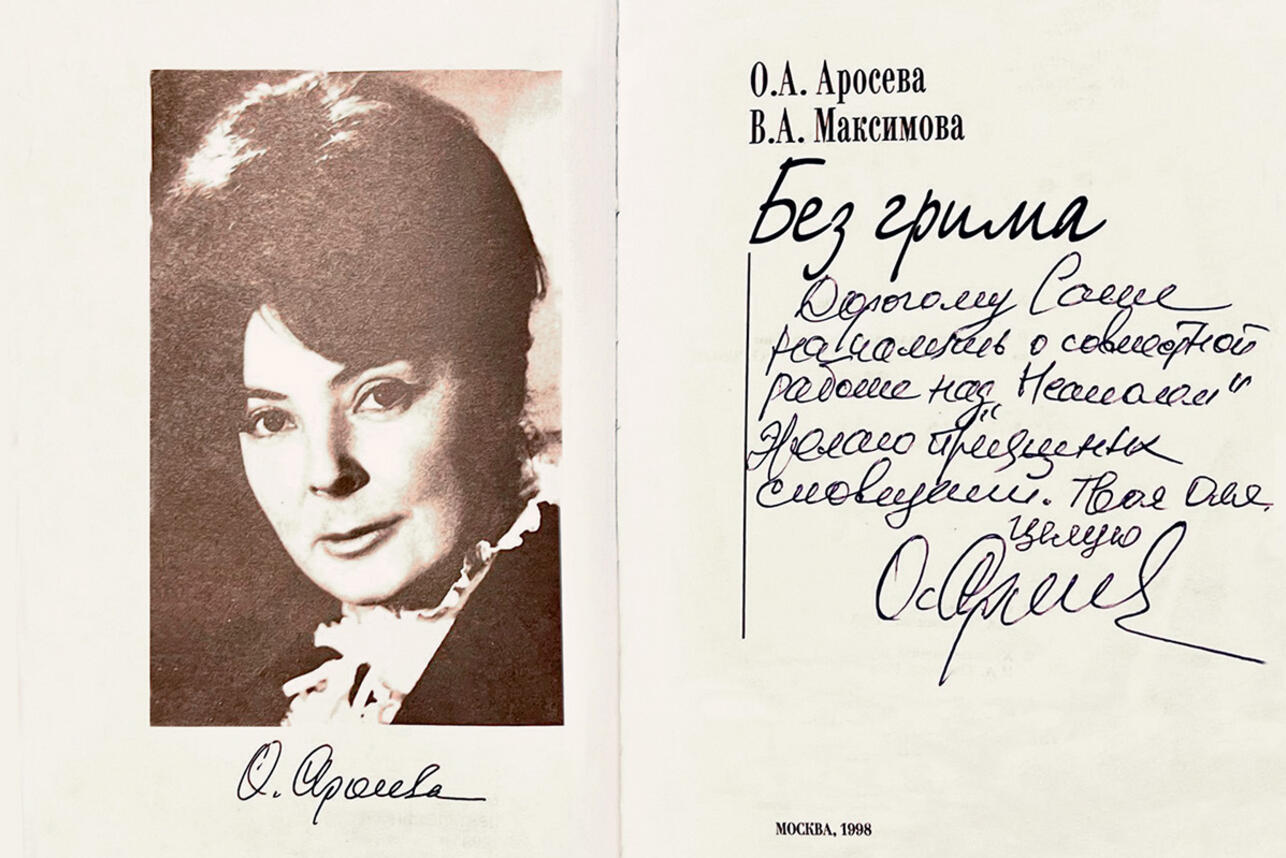 О. Аросева
О.А. Аросева
В.А. Максимова
Без грима
Дорогому Саше
на память о совместной
работе над „Наталом“
Желаю
сновидений. Твоя Оля.
Целую
О. Аросева
МОСКВА, 1998